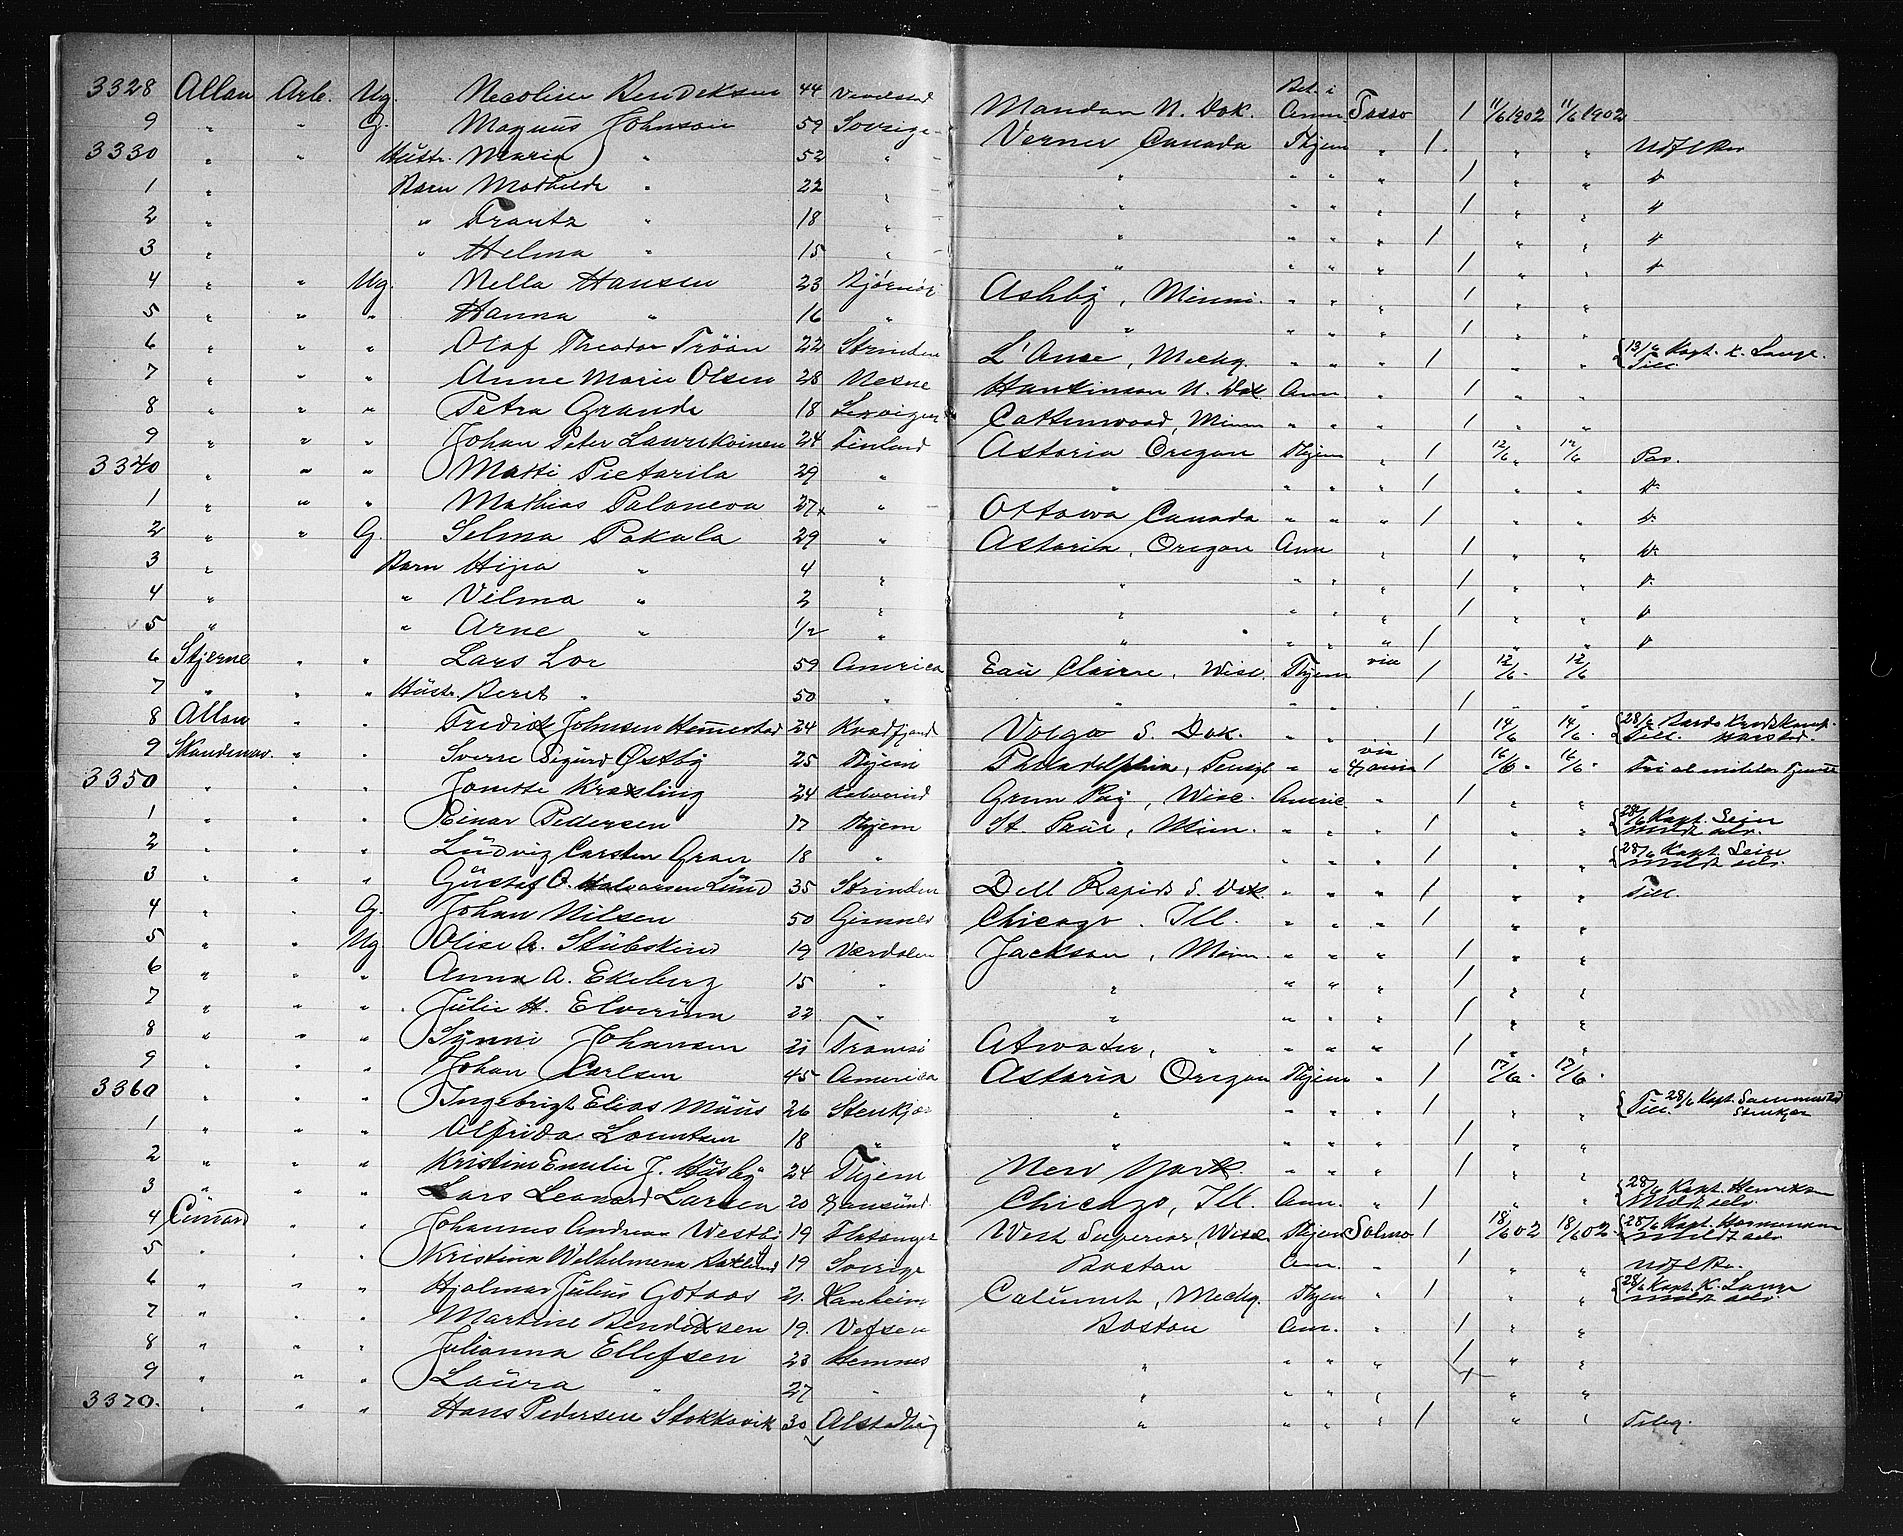 3328 Allan Arb. Ug. Nicoline Bendiksen 44 Mandan N. Dak. Bet. i Am Tasso 1 11/6 1902 11/6 1902
9 " " G. Magnus Johnson 59 Sverige Verner Canada Thjem " 1 " "
3330 " " Hustr. Maria " 52 " " " " " 1 " "
1 " Barn Mathilde " 22 " " " " " 1 " "
2 " " Frantz " 18 " " " " " 1 " "
3 " " Helma " 15 " " " " " 1 " "
4 " " Ug. Nella Hansen 23 Bjørnør Ashby, Minni. " " " 1 " "
5 " " " Hanna " 16 " " " " " 1 " "
6 " " " Olaf Theodor Tröön 22 Strinden L'Anse, Mechg. " " " 1 " " 13/6 Kapt. K. Lange. Till.
7 " " " Anne Marie Olsen 28 Nesne Hankinson N. Dak Am. " 1 " "
8 " " " Petra Grande 18 Cottenwood, Minn " " " 1 " "
9 " " " Johan Peter Laurikainen 24 Finland Astoria Oregon Thjem " 1 12/6 12/6 Pas.
3340 " " " Matti Pietarila 29 " " " " " 1 " " "
1 " " " Mathias Palaneva 27 " Ottowa Canada " " " 1 " " "
2 " " G. Selma Pakala 29 " Astoria, Oregon Am " 1 " " "
3 " Barn Hipa " 4 " " " " " 1 " " "
4 " " Vilma " 2 " " " " " 1 " " "
5 " " Arne " 1/2 " " " " " 1 " " "
6 Stjerne " " Lars Lor 59 America Eau Claire, Wisc. Thjem via 1 12/6 12/6
7 " " " Hustr. Beret " 50 " " " " 1 " "
8 Allan " " Fredrik Johnsen Hemmestad 24 Kvadfjord Volga S. Dak. " " 1 14/6 14/6 28/6 Till. Harstad.
9 Skandinav. " " Sverre Sigurd Østby 25 Thjem Philadelphia, " " via 1 16/6 16/6 Fri al militær Tjeneste
3350 " " " Jonette Kræsling 24 Green Bay, Wisc. Americ " 1 " "
1 " " " Einar Pedersen 17 Thjem St. Paul, Minn. " " " 1 " " 28/6 Kapt. Sein meldt selv.
2 " " " Ludvig Carsten Gran 18 " " " " " 1 " " 28/6 Kapt. Sein meldt selv.
3 " " " Gustaf O. Halvorsen Lund 35 Strinden Dell Rapids S. Dak. " " " 1 " " Till.
4 " " G. Johan Nilsen 50 Chicago. Ill. " " " 1 " "
5 " " Ug Olise A. Stubskind 19 Værdalen Jackson, Minn. " " " 1 " "
6 " " " Anna A. Ekeberg 15 " " " " " 1 " "
7 " " " Julie H. Elverum 22 " " " " " 1 " "
8 " " " Synni Johansen 21 Tromsö Atwater, " " " " 1 " "
9 " " " Johan Carlsen 45 America Astoria Oregon Thjem " 1 17/6 17/6
3360 " " " Ingebrigt Elias Müus 26 Stenkjær " " " " 1 " " Till. 28/6 Kapt. Stenkjær
1 " " " Alfrida Lorentsen 18 " " " " " 1 " "
2 " " " Kristine Emelie J. Husby 24 Thjem New York. " " " 1 " "
3 " " " Lars Leonard Larsen 20 Chicago, Ill. Am. " 1 " " 28/6 Kapt. Henriksen Meldt selv.
4 Cunard " " Johannes Andreas Westbi 19 Flatanger West Superior, Wisc. Thjem Salmo 1 18/6 02 18/6 02 28/6 Kapt. meldt selv
5 " " " Kristina Wilhelmena 19 Sverige Boston Am. " 1 " "
6 " " " Hjalmar Julius Gotaas 21. Calumet, Mechg. Thjem " 1 " " 28/6 Kapt. K. Lange meldt selv.
7 " " " Martine Bendiksen 19. Vefsen Boston Am. " 1 " "
8 " " " Julianna Ellefsen 23 Hemnes " " " " 1 " "
9 " " " Laura " 27 " " " " " 1 " "
3370. " " " Hans Pedersen Stokkavik 30 Alstadhug " " " " 1 " " Teleg.